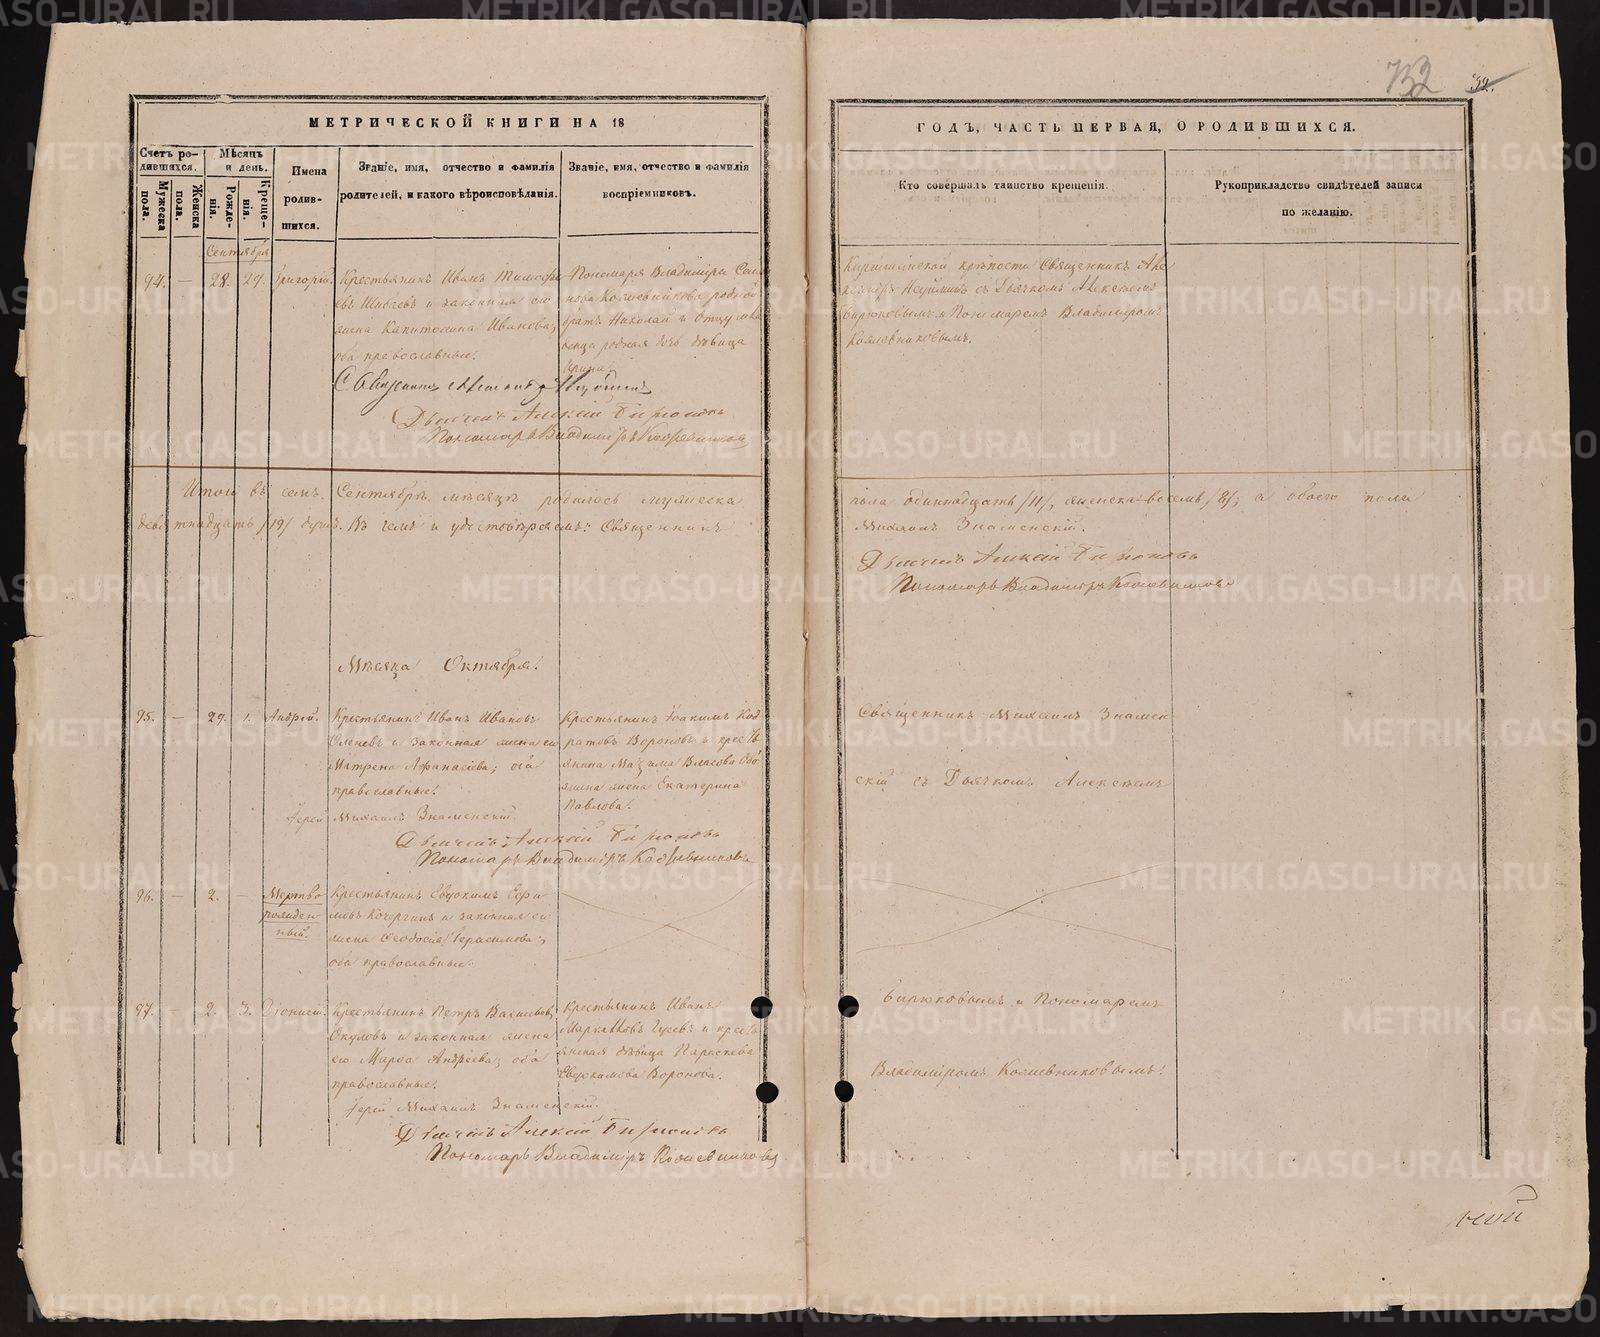 732
39.
МЕТРИЧЕСКОЙ КНИГИ НА 18
ГОДЪ, ЧАСТЬ ПЕРВАЯ, О РОДИВШИХСЯ.
Счетъ ро-
дившихся.
Мужеска
пола.
Женска
пола.
Мѣсяцъ
и день.
Рожде-
нія.
Креще-
нія.
Имена
родив-
шихся.
Званіе, имя, отчество и фамилія
родителей, и какого вѣроисповѣданія.
Званіе, имя, отчество и фамилія
воспріемниковъ.
Кто совершалъ таинство крещенія.
Рукоприкладство свидѣтелей записи
по желанію.
Сентября
94. — 28. 29. Григорій.
Крестьянинъ Иванъ Тимофе
евъ и законная его
жена Капитолина Иванова;
оба православные.
Пономаря Владиміра
Кожевникова родной
братъ Николай и
родная дочь дѣвица
Ирина.
крѣпости Священникъ Але
ксандръ съ Дьячкомъ Алексѣемъ
Бирюковымъ и Пономаремъ Владиміромъ
Кожевниковымъ.
Священникъ Александръ
Дьячекъ Алексій Бирюковъ
Пономарь Владиміръ Кожевниковъ
Итого въ семъ Сентябрѣ мѣсяцѣ родилось мужеска
пола одиннадцать /11/, женска восемь /8/; а обоего пола
девятнадцать /19/ душъ. Въ чемъ и удостовѣряемъ: Священникъ
Михаилъ Знаменскій.
Дьячекъ Алексій Бирюковъ
Пономарь Владиміръ Кожевниковъ
Мѣсяца Октября.
95. — 29. 1. Андрей.
Крестьянинъ Иванъ Ивановъ
и законная жена его
Матрена Афанасіева; оба
православные.
Крестьянинъ Іоакимъ Код
ратовъ Вороновъ и кресть
янина Власова
жена Екатерина
Павлова.
Священникъ Михаилъ Знамен
скій съ Дьячкомъ Алексѣемъ
Іерей Михаилъ Знаменскій.
Дьячекъ Алексій Бирюковъ
Пономарь Владиміръ Кожевниковъ
96. — 2. —
Мертво
рожден
ный.
Крестьянинъ Евдокимъ Ефи
мовъ Кочергинъ и законная его
жена Ѳеодосія Герасимова;
оба православные.
97. — 2. 3. Діонисій.
Крестьянинъ Петръ Васильевъ
Окуловъ и законная жена
его Марѳа Андреева; оба
православные.
Крестьянинъ Иванъ
Гусевъ и кресть
янская дѣвица Параскева
Евдокимова Воронова.
Бирюковымъ и Пономаремъ
Владиміромъ Кожевниковымъ.
Іерей Михаилъ Знаменскій.
Дьячекъ Алексій Бирюковъ
Пономарь Владиміръ Кожевниковъ
METRIKI.GASO-URAL.RU